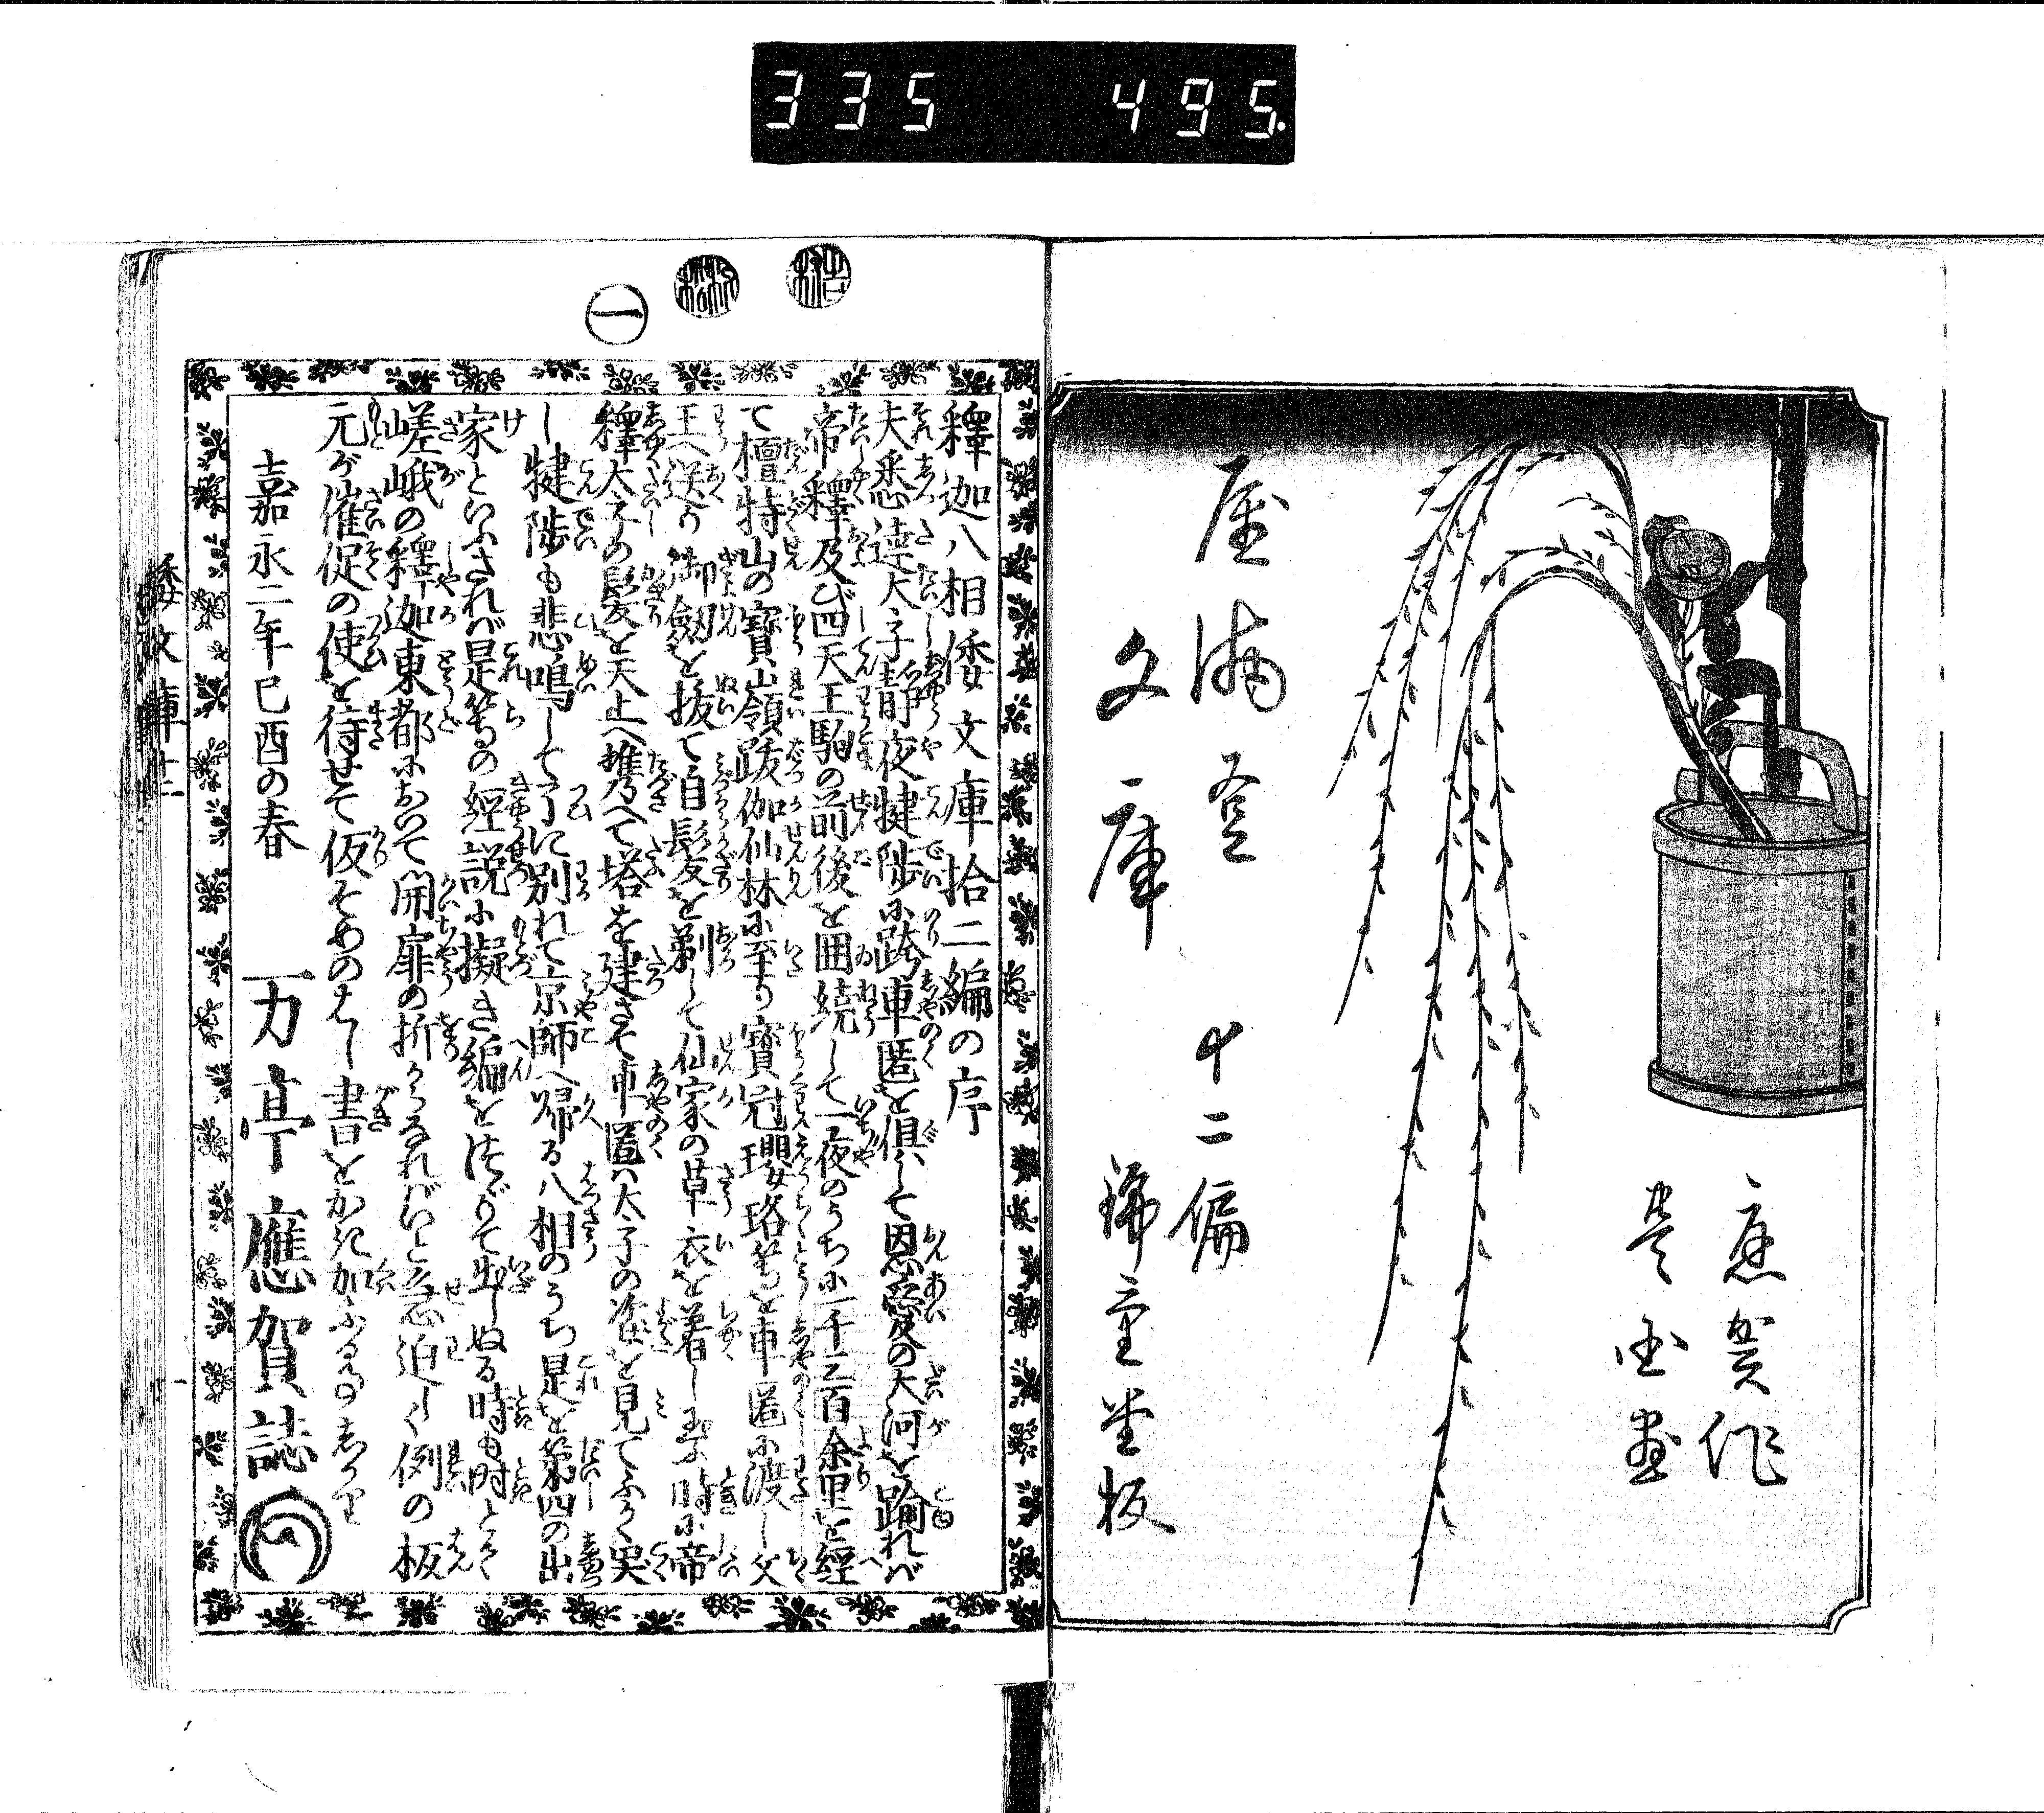 335 495.
應賀作
国画
屋満登
文庫
十二偏
錦重堂板
一
釋迦八相倭文庫拾二編の序
夫悉達太子静夜犍陟に跨車匿を倶して恩愛の大河を踰れば
帝釋及び四天王駒の前後を囲繞して一夜のうちに一千三百余里を經
て檀特山の寳嶺跋伽仙林に至り寳冠瓔珞等を車匿に渡し父
王へ送り御劔を抜て自髪を剃して仙家の草衣を着し玉ふ時に帝
釋太子の髪を天上へ携へて塔を建さて車匿ハ太子の姿を見てふかく哭
し犍陟も悲鳴してつひに別れて京師へ帰る八相のうち是を第四の出
家といふされば是等の經説に擬き編をつゞりて出しぬる時も時とて
嵯峨の釋迦東都において開扉の折からなればいと急迫しく例の板
元が催促の使を待せて仮そめのはし書をかき加ふるのみしかり
嘉永二年己酉の春
万亭應賀誌
倭文庫十二